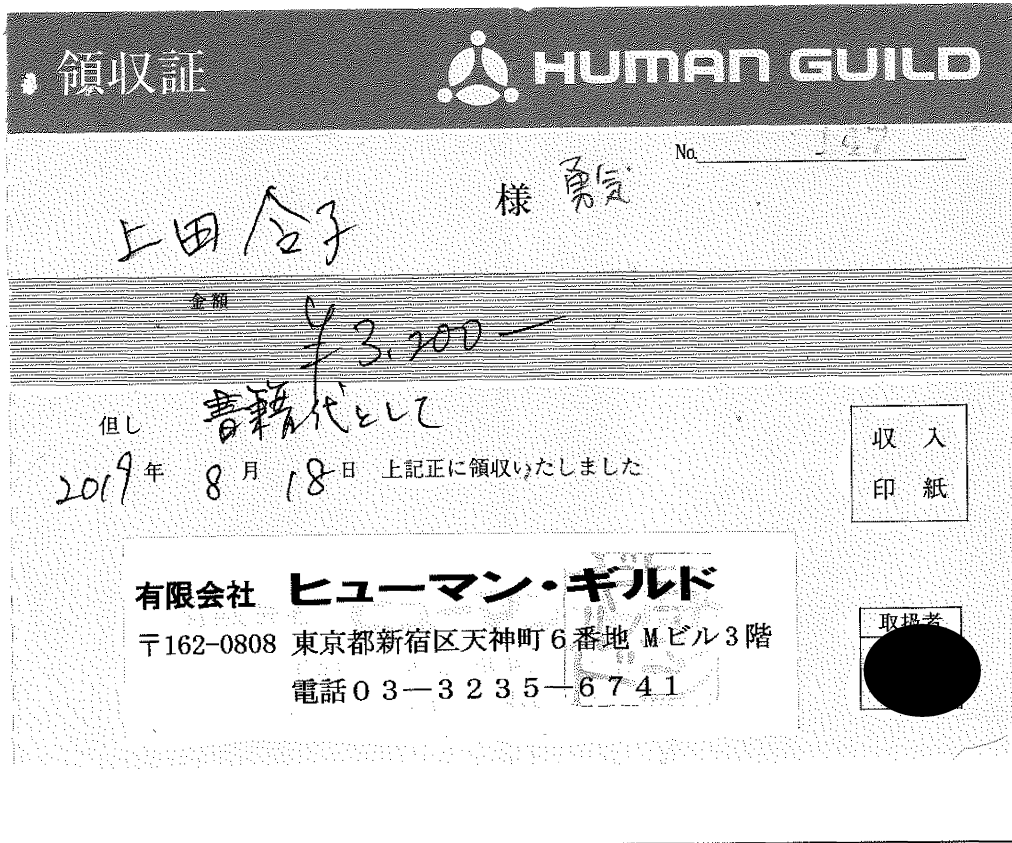 領収証 HUMAN GUILD
No.
上田 合子 様 勇気
金額 ¥3,200—
但し 書籍代として
2019年 8月 18日 上記正に領収いたしました
収入
印紙
有限会社 ヒューマン・ギルド
〒162-0808 東京都新宿区天神町6番地 Mビル3階
電話03—3235—6741
取扱者